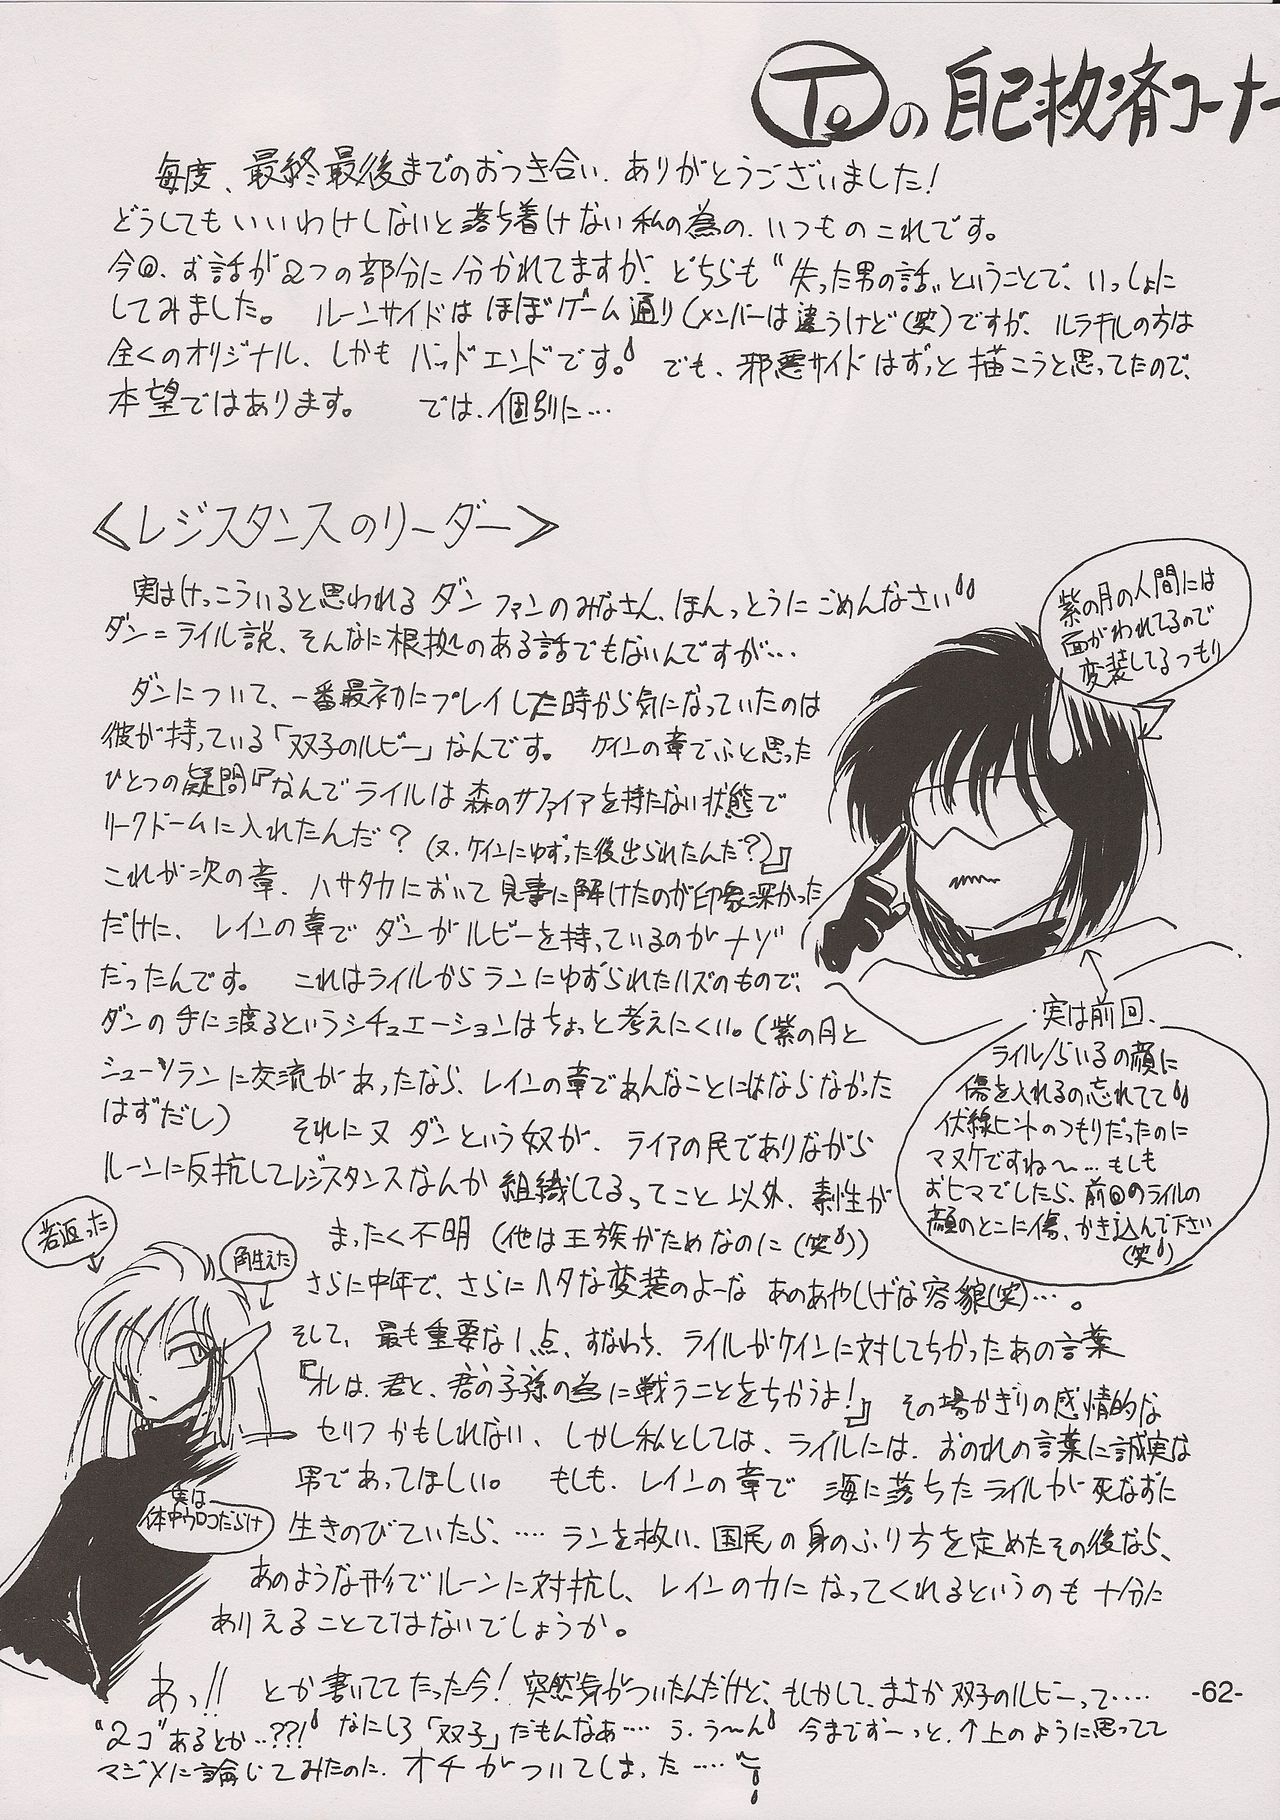 Toの自己救済コーナー
毎度、最終最後までのおつき合い、ありがとうございました!
どうしてもいいわけしないと落ち着けない私の為の、いつものこれです。
今回、お話が2つの部分に分かれてますが、どちらも“失った男の話„ということで、いっしょに
してみました。 ルーンサイドはほぼゲーム通り(メンバーは違うけど(笑)ですが、ルラキルの方は
全くのオリジナル、しかもバッドエンドです。でも、邪悪サイドはずっと描こうと思ってたので、
本望ではあります。 では、個別に…
≪レジスタンスのリーダー≫
実はけっこういると思われるダンファンのみなさん、ほんっとうにごめんなさい
ダン=ライル説、そんなに根拠のある話でもないんですが…
ダンについて、一番最初にプレイした時から気になっていたのは
彼が持っている「双子のルビー」なんです。 ケインの章でふと思った
ひとつの疑問『なんでライルは森のサファイアを持たない状態で
リークドームに入れたんだ?(又、ケインにゆずった後出られたんだ?)』
これが次の章、ハサタカにおいて見事に解けたのが印象深かった
だけに、レインの章でダンがルビーを持っているのがナゾ
だったんです。 これはライルからランにゆずられたハズのもので、
ダンの手に渡るというシチュエーションはちょっと考えにくい。(紫の月と
シューソランに交流があったなら、レインの章であんなことにはならなかった
はずだし) それに又ダンという奴が、ライアの民でありながら
ルーンに反抗してレジスタンスなんか組織してるってこと以外、素性が
まったく不明(他は王族がためなのに(笑))
さらに中年で、さらにヘタな変装のよーなあのあやしげな容貌(笑)…。
そして、最も重要な1点、すなわち、ライルがケインに対してちかったあの言葉
『オレは、君と、君の子孫の為に戦うことをちかうよ!』 その場かぎりの感情的な
セリフかもしれない、しかし私としては、ライルには、おのれの言葉に誠実な
男であってほしい。 もしも、レインの章で海に落ちたライルが死なずに
生きのびていたら、…… ランを救い、国民の身のふり方を定めたその後なら、
あのような形でルーンに対抗し、レインの力になってくれるというのも十分に
ありえることではないでしょうか。
あっ!! とか書いててたった今!突然気がついたんだけど、もしかして、まさか双子のルビーって……
“2コ”あるとか…??! なにしろ「双子」だもんなぁ…… う、う〜ん 今までずーっと、↑上のように思ってて
マジメに論じてみたのに、オチがついてしまった……
紫の月の人間には
面がわれてるので
変装してるつもり
実は前回、
ライル/らいるの顔に
傷を入れるの忘れてて
伏線ヒントのつもりだったのに
マヌケですね〜…もしも
おヒマでしたら、前回のライルの
顔のとこに傷、かき込んで下さい
(笑)
若返った
角生えた
実は
体中ウロコだらけ
-62-